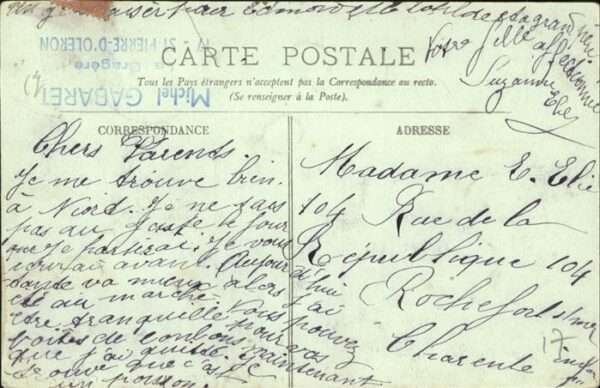 un gros baiser pour Edmond et Clotilde et ta grand mère
Votre fille affectionnée
Suzanne Elie
Michel GABARET
17 - ST-PIERRE-D'OLERON
CARTE POSTALE
Tous les Pays étrangers n'acceptent pas la Correspondance au recto.
(Se renseigner à la Poste).
CORRESPONDANCE
Chers Parents.
Je me trouve bien
à Niort. Je ne sais
pas au juste le jour
que je partirai. Je vous
écrirai avant. Aujourd'hui
va mieux alors j'ai
été au marché. Vous pouvez
être tranquille pour vos
boîtes de bonbons maintenant
que j'ai quitté. Je
trouve que c'est
un poison.
ADRESSE
Madame E. Elie
104 Rue de la
République 104
Rochefort s/mer
Charente Inf
17